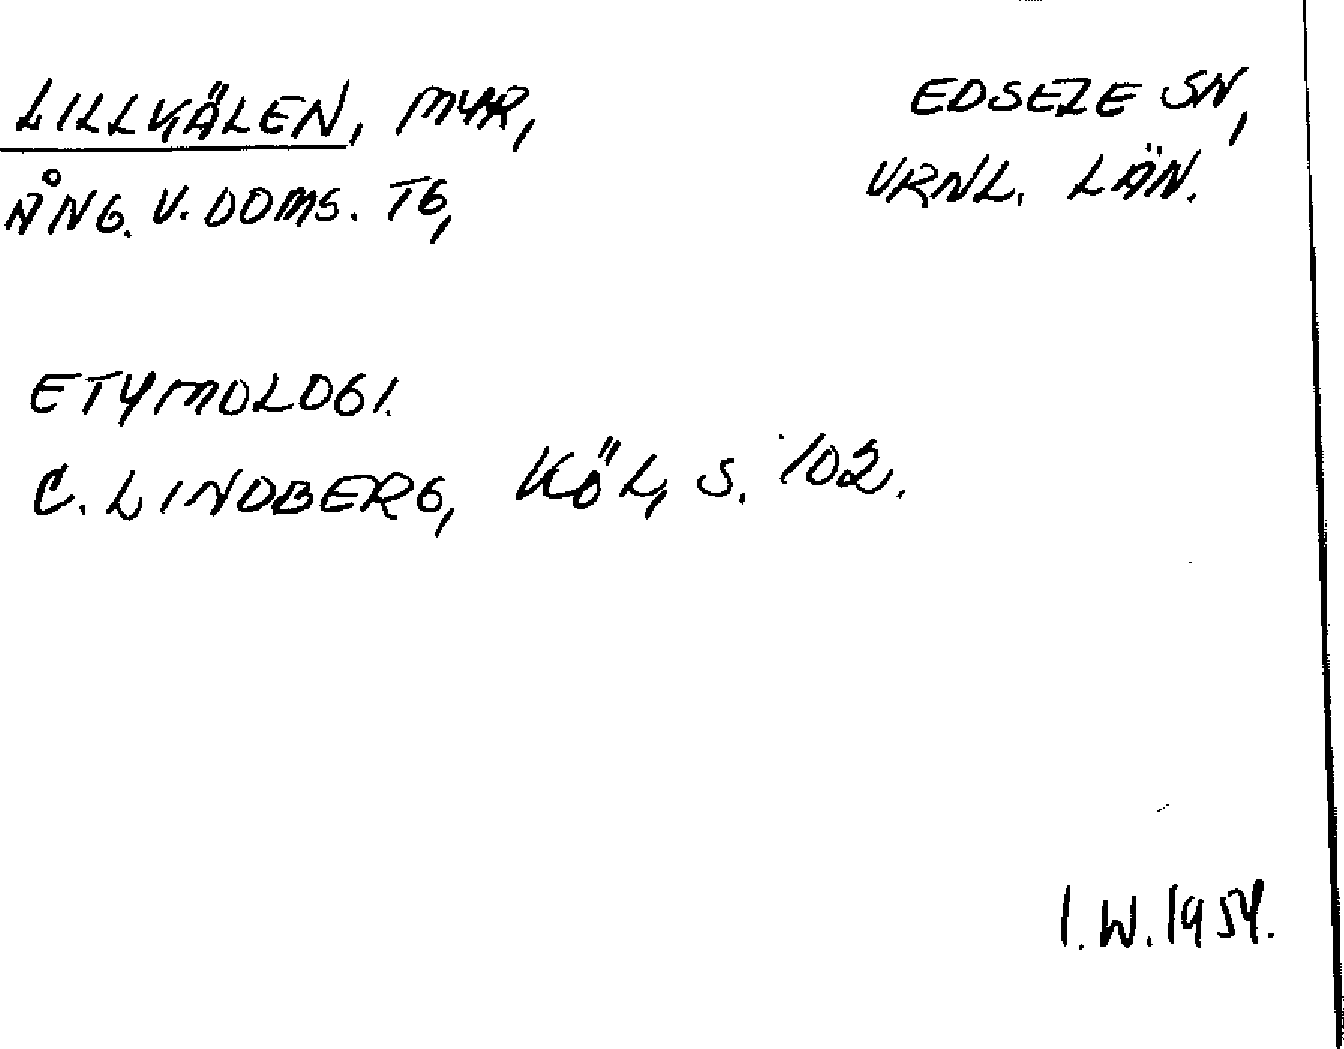 LILLKÄLEN, MYR,
EDSELE SN,
ÅNG. V. DOMS. TG,
VRNL. LÄN.
ETYMOLOGI.
C. LINDBERG, KÖL, S. 102.
I. W. 1954.